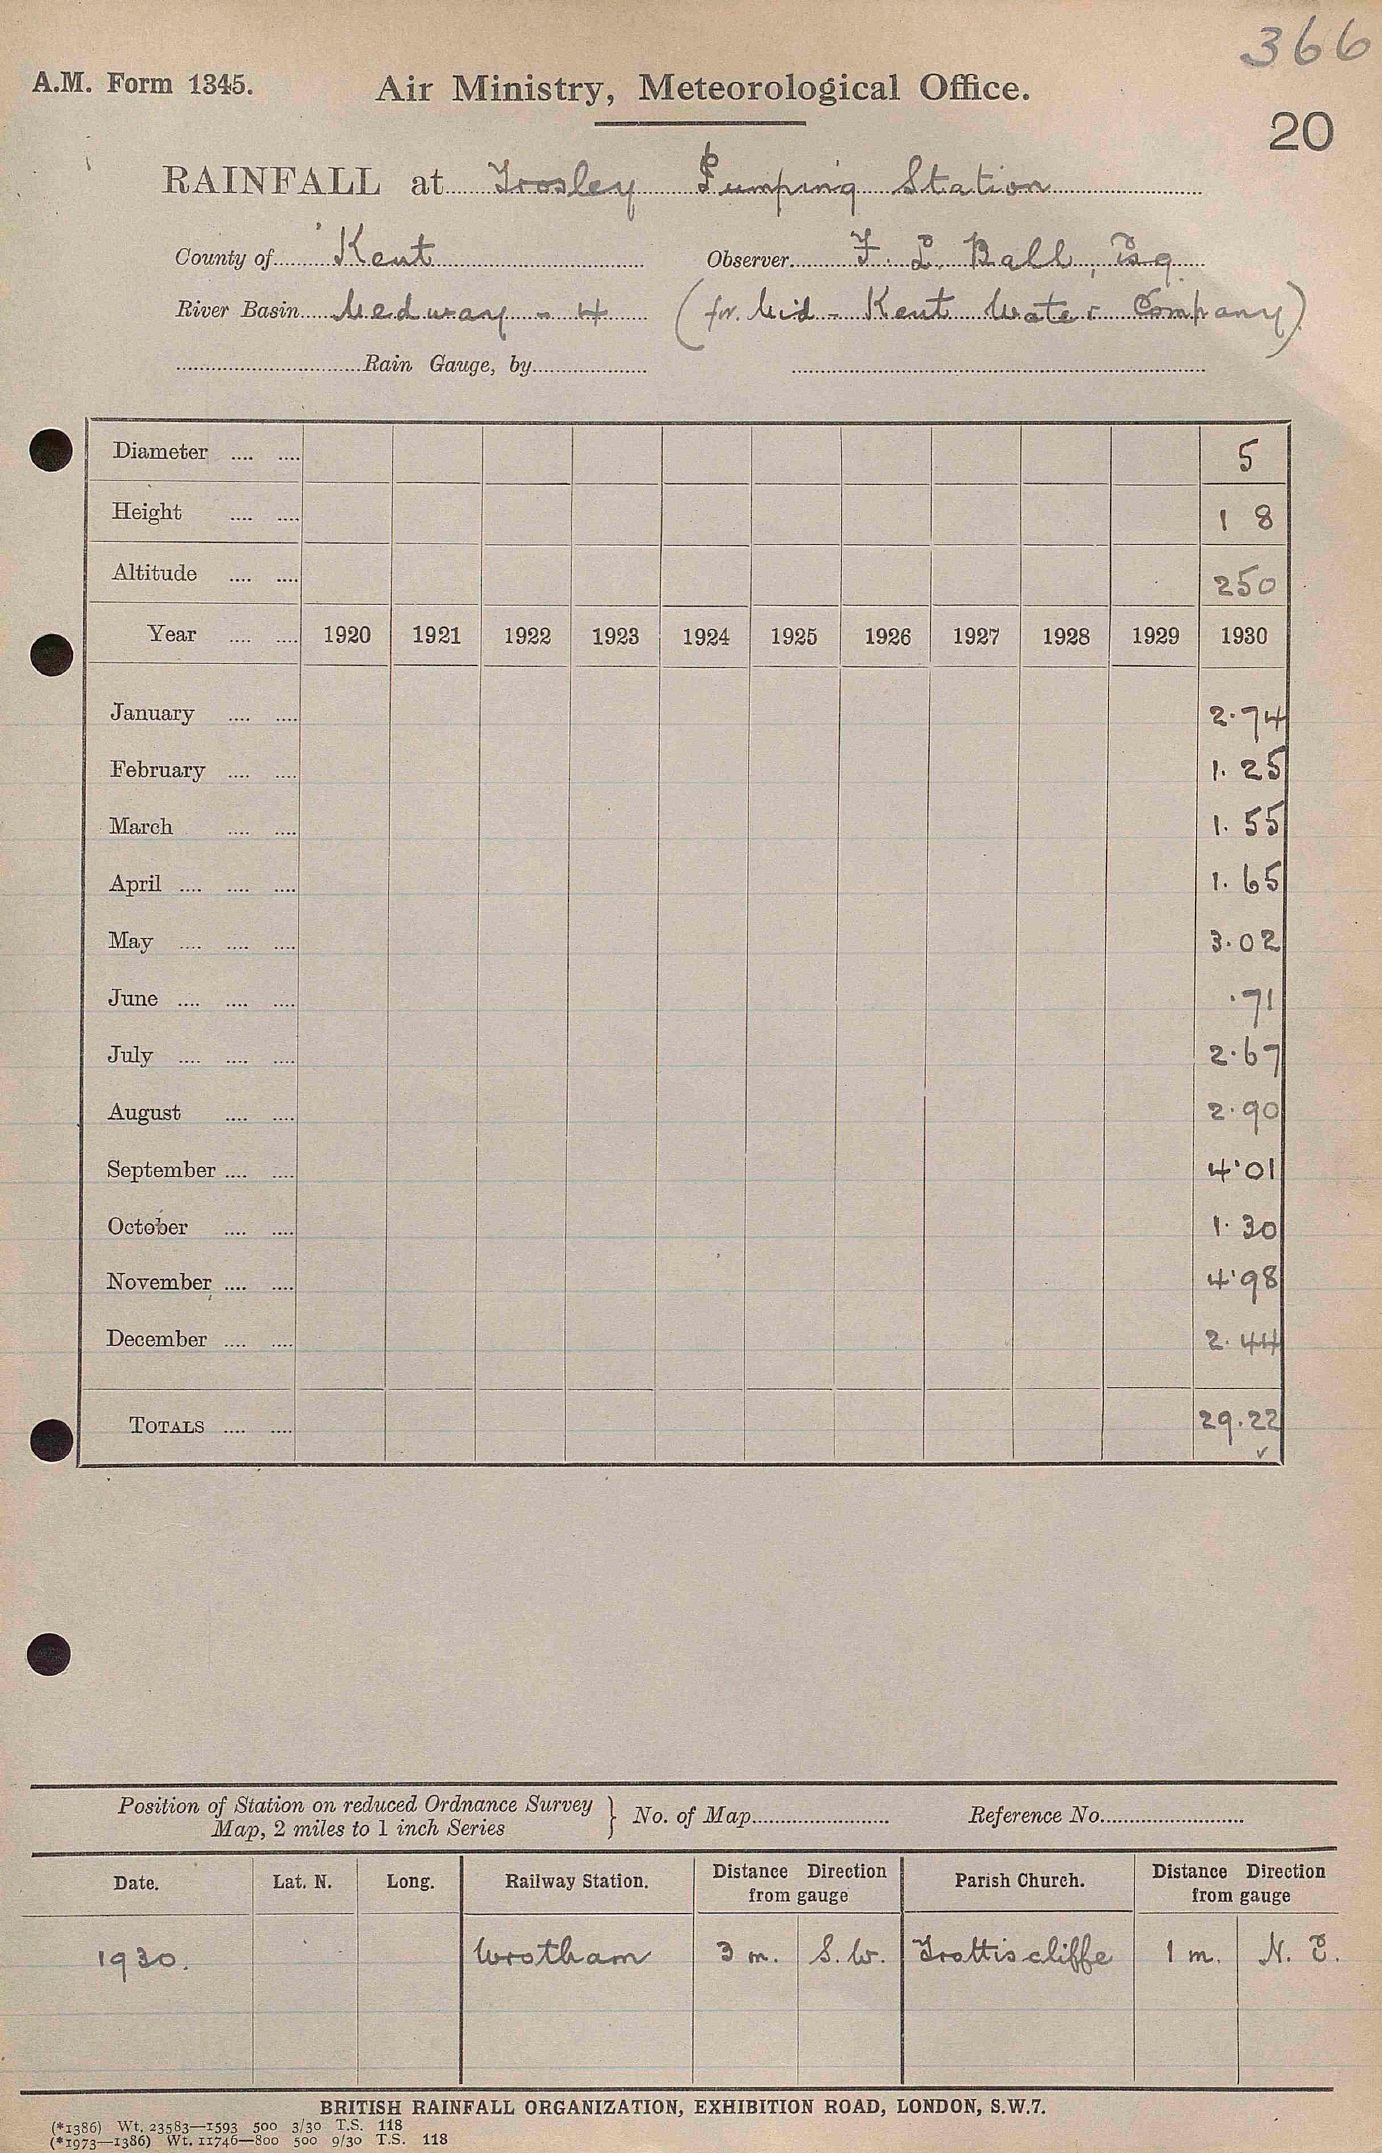 366
A.M. Form 1345. Air Ministry, Meteorological Office.
20
RAINFALL at Trosley Pumping Station
County of Kent Observer F. L. Ball, Esq
River Basin Medway - 4 (for Mid-Kent Water Company)
Rain Gauge, by
Diameter .... .... 5
Height .... .... 1 8
Altitude .... .... 250
Year .... .... 1920 1921 1922 1923 1924 1925 1926 1927 1928 1929 1930
January .... .... 2.74
February .... .... 1.25
March .... .... 1.55
April .... .... .... 1.65
May .... .... .... 3.02
June .... .... .... .71
July .... .... .... 2.67
August .... .... 2.90
September .... .... 4.01
October .... .... 1.30
November .... .... 4.98
December .... .... 2.44
TOTALS .... .... 29.22
✓
Position of Station on reduced Ordnance Survey Map, 2 miles to 1 inch Series } No. of Map Reference No.
Date. Lat. N. Long. Railway Station. Distance Direction from gauge Parish Church. Distance Direction from gauge
1930. Wrotham 3 m. S.W. Trottiscliffe 1 m. N. E.
BRITISH RAINFALL ORGANIZATION, EXHIBITION ROAD, LONDON, S.W.7.
(*1386) Wt. 23583—1593 500 3/30 T.S. 118
(*1973—1386) Wt. 11746—800 500 9/30 T.S. 118